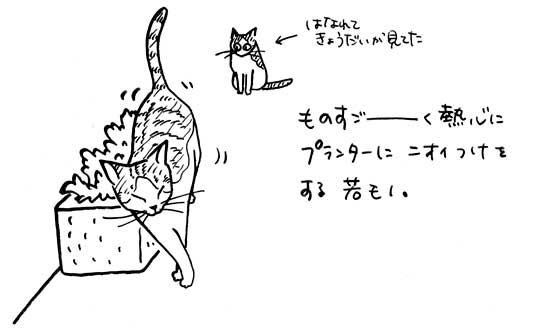 はなれて
きょうだいが見てた
ものすごーーーく熱心に
プランターに ニオイつけを
する 若モい。